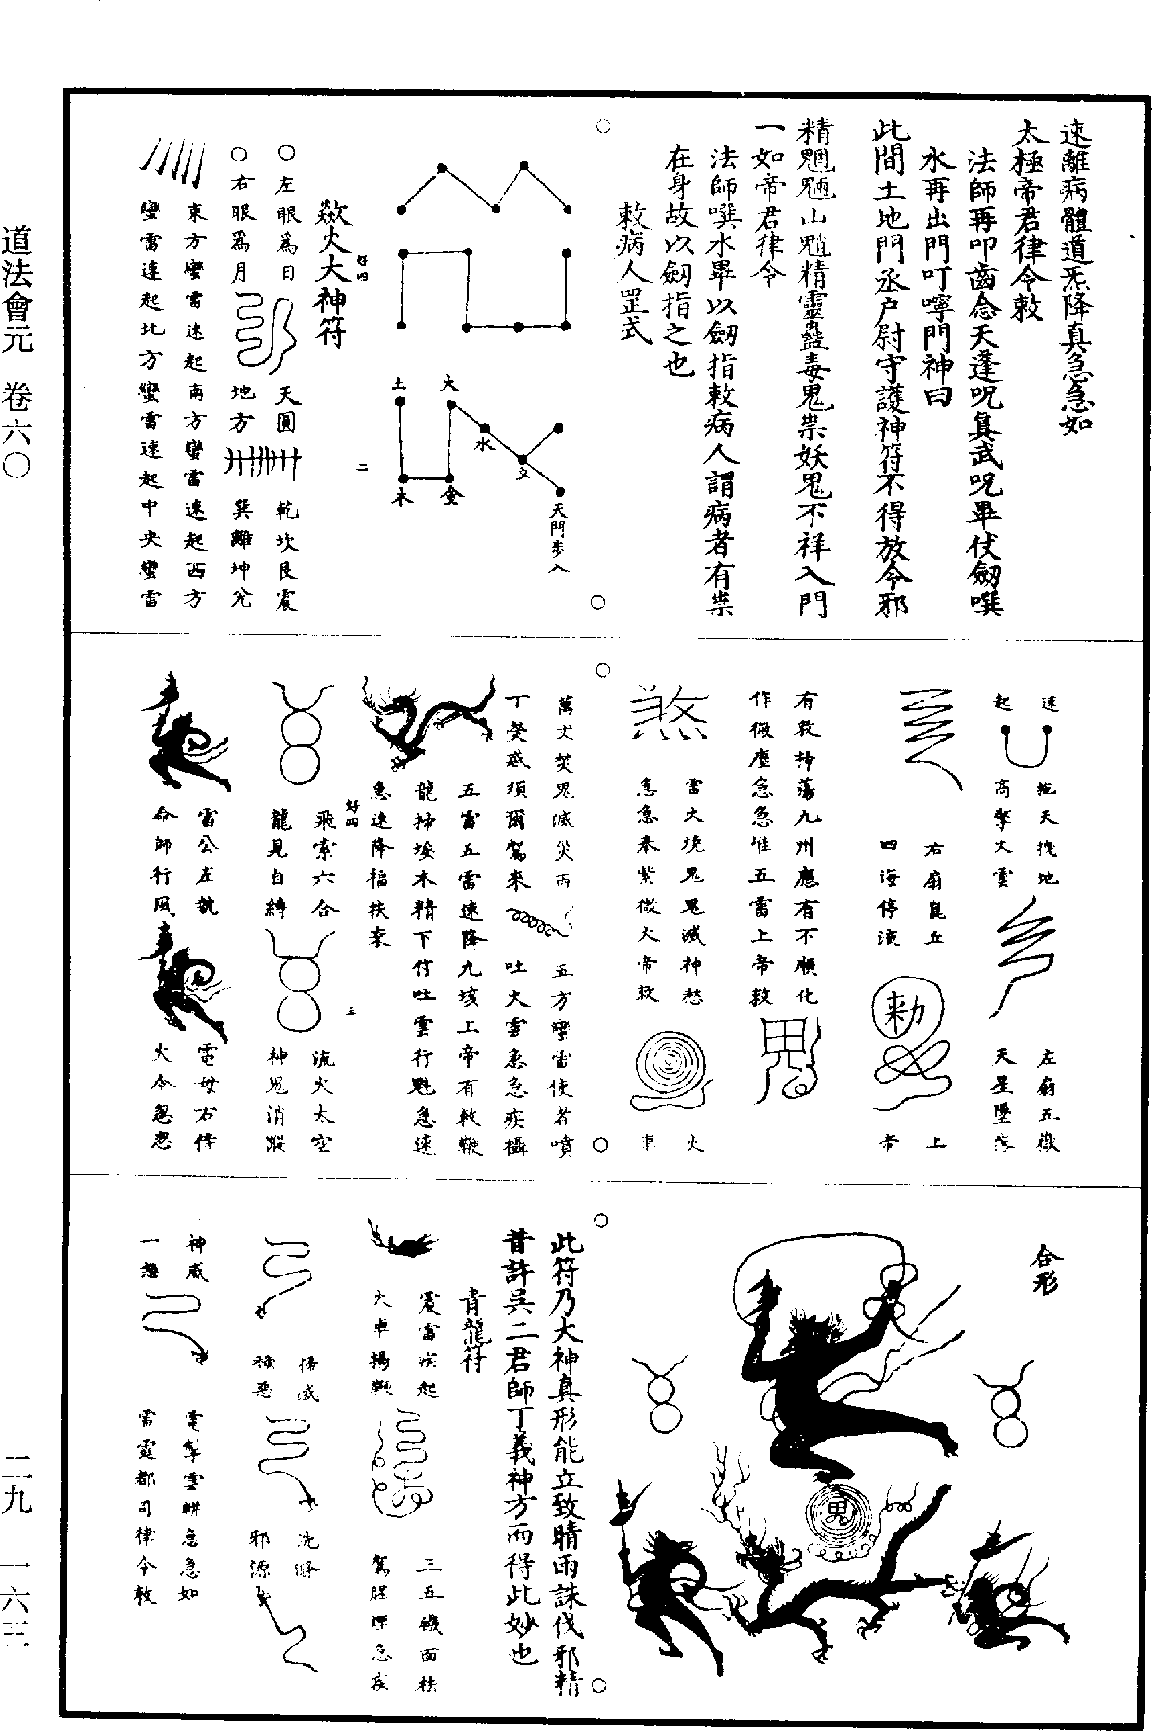 速離病體道炁降真急急如
太極帝君律令敕
法師再叩齒念天蓬呪真武呪畢仗劒噀
水再出門叮嚀門神曰
此間土地門丞户尉守護神符不得放令邪
精魍魎山魈精靈蠱毒鬼祟妖鬼不祥入門
一如帝君律令
法師噀水畢以劒指敕病人謂病者有祟
在身故以劒指之也
敕病人罡式
土
火
水
木
金
天門步入
好四
二
歘火大神符
○左眼爲日
○右眼爲月
天圓
地方
乾坎艮震
巽離坤兌
東方蠻雷速起南方蠻雷速起西方
蠻雷速起北方蠻雷速起中央蠻雷
速
起
拖天拽地
高擎火雲
左扇五嶽
天星墜落
右扇崑丘
四海停流
敕
上
帝
有敕掃蕩九州應有不順化
作微塵急急惟五雷上帝敕
鬼
煞
雷火燒鬼鬼滅神愁
急急奉紫微大帝敕
火
車
萬丈熒鬼滅災丙
丁熒惑須爾駕來
五方蠻雷使者噴
吐火雲急急疾攝
五雷五雷速降九垓上帝有敕鞭
龍掃
木精下
吐雲行
急速
急速降福扶衰
好四
三
飛索六合
龍見自縛
流火太空
神鬼消蹤
雷公左執
命師行風
電母右侍
火令急急
合形
鬼
此符乃大神真形能立致晴雨誅伐邪精
昔許吳二君師丁義神方而得此妙也
青龍符
震雷疾起
火車揚鞭
三五鐵面
急疾
邪源
神威
電掣雲
急急如
雷霆都司律令敕
道法會元 卷六〇
二九 一六三